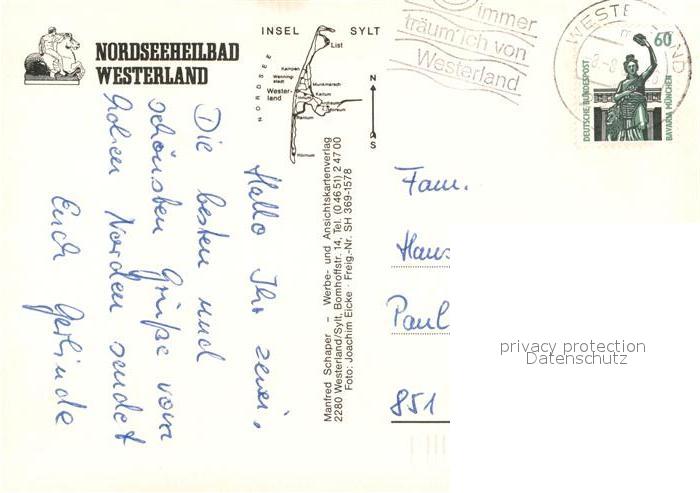 NORDSEEHEILBAD
WESTERLAND
INSEL SYLT
List
NORDSEE
Kampen
Wenning-
stedt
Munkmarsch
Wester-
land
Keitum
Tinnum
Archsum
Morsum
Rantum
Hörnum
N
S
Manfred Schaper – Werbe- und Ansichtskartenverlag
2280 Westerland/Sylt, Bomhoffstr. 14, Tel. (0 46 51) 2 47 00
Foto: Joachim Eicke · Freig.-Nr. SH 369-1578
immer
träum' ich von
Westerland
WESTERLAND
60
DEUTSCHE BUNDESPOST
BAVARIA MÜNCHEN
Hallo Ihr zwei,
Die besten und
schönsten Grüße vom
hohen Norden sendet
Euch Gerlinde
Fam.
Hans
Paul
851
privacy protection
Datenschutz